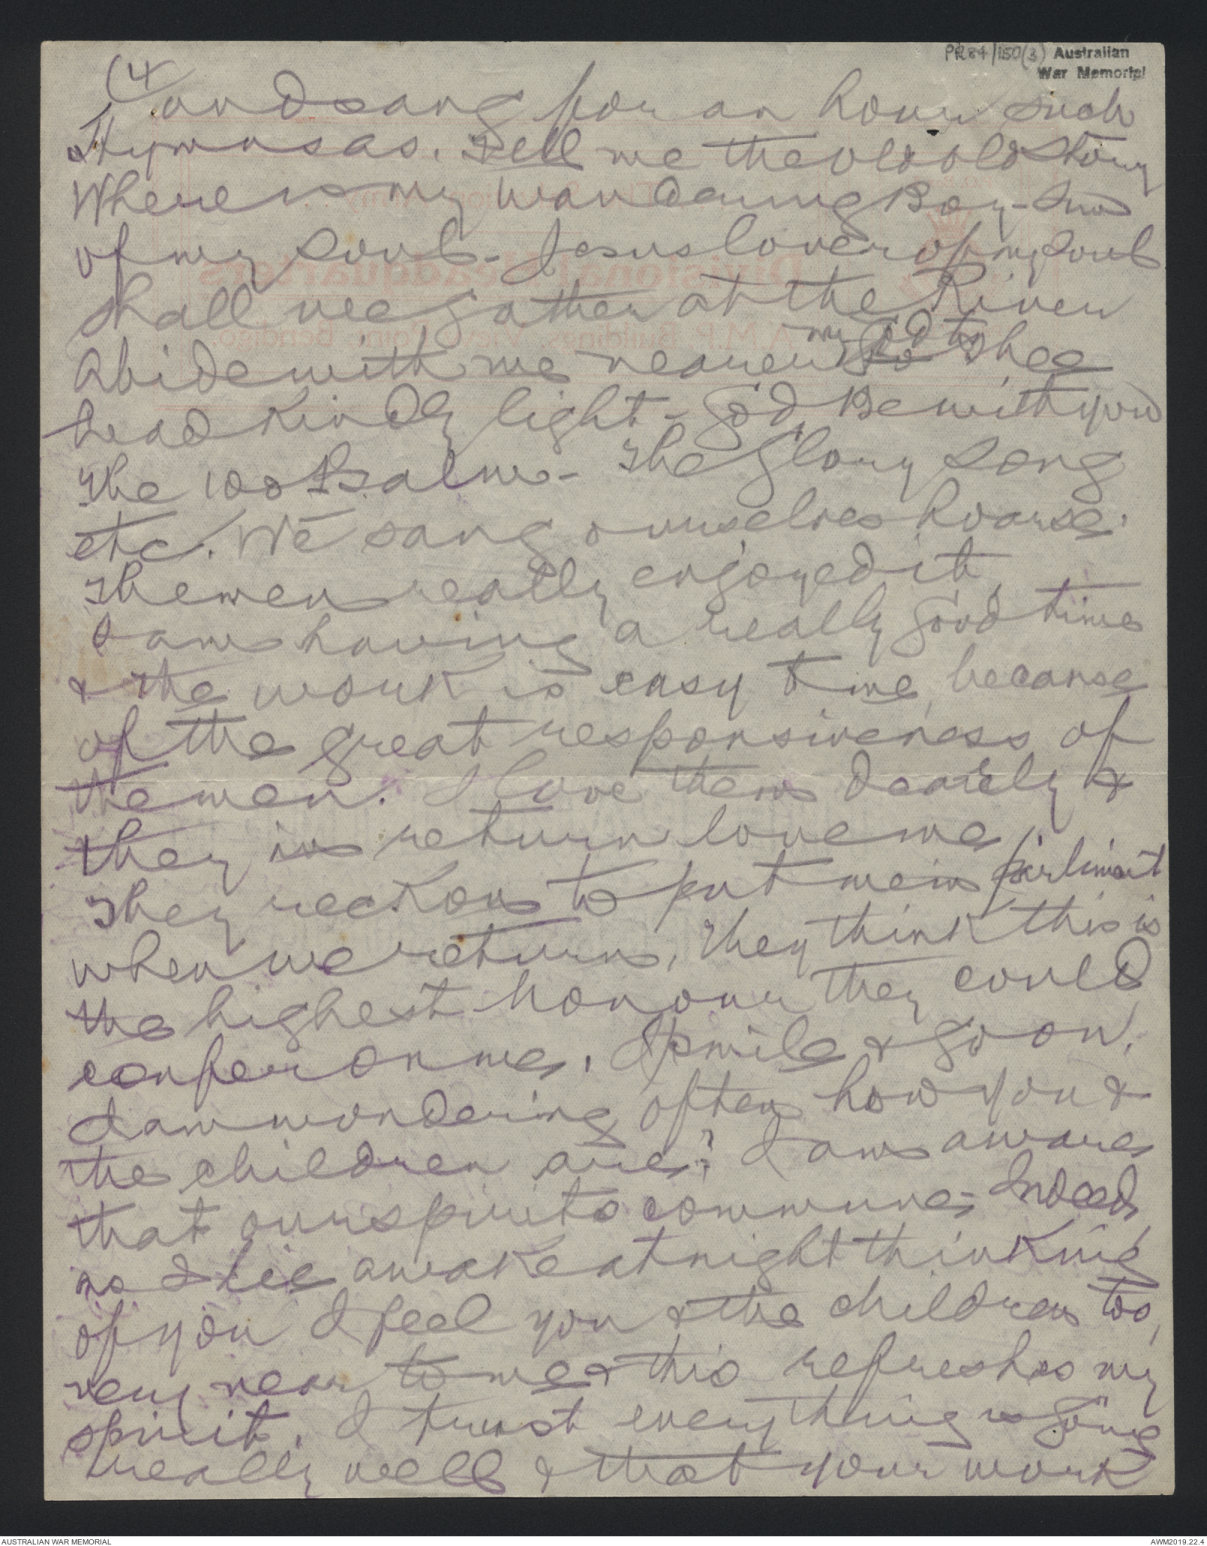 PR84/150(3) Australian
War Memorial
(4
and sang for an hour such
Hymns as. Tell me the old old Story
Where is my wandering Boy - Sun
of my soul - Jesus lover of my soul
Shall we gather at the River
Abide with me nearer my God to Thee
Lead Kindly light - God Be with you
The 100 Psalm - The Glory Song
etc. We sang ourselves hoarse.
The men really enjoyed it,
I am having a really good time
& the work is easy to me because
of the great responsiveness of
the men. I love them dearly &
they in return love me
They reckon to put me in parliment
when we return, They think this is
the highest honour they could
confer on me. I smile & go on.
I am wondering often how you &
the children are? I am aware
that our spirits commune; Indeed
as I lie awake at night thinking
of you I feel you & the children too,
very near to me & this refreshes my
spirit. I trust everything is going
really well & that your work
Divisional Headquarters
A.M.P. Buildings, View Point, Bendigo.
AUSTRALIAN WAR MEMORIAL
AWM2019.22.4